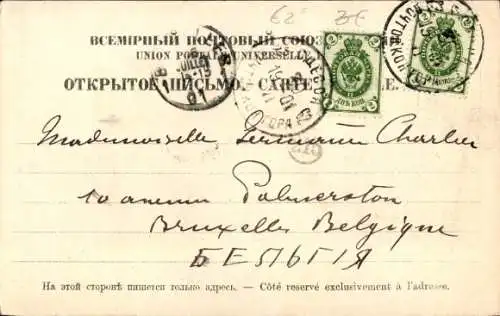 ВСЕМІРНЫЙ ПОЧТОВЫЙ СОЮЗ
UNION POSTALE UNIVERSELLE
ОТКРЫТОЕ ПИСЬМО. - CARTE
Mademoiselle Germaine Charlier
10 avenue Palmerston
Bruxelles Belgique
БЕЛЬГІЯ
На этой сторонѣ пишется только адресъ. — Côté reservé exclusivement à l'adresse.